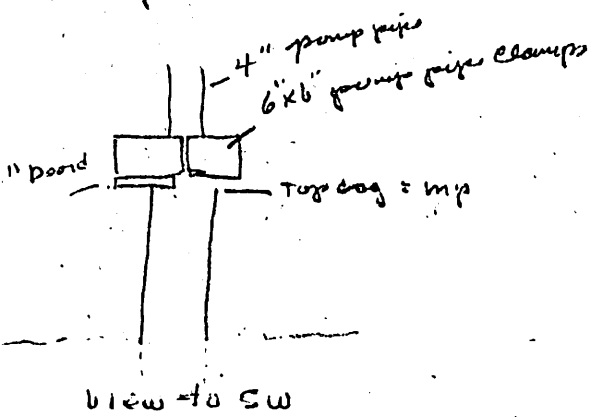 4" pump pipe
6"x6" pump pipe clamps
1" board
Top csg = mp
View to SW